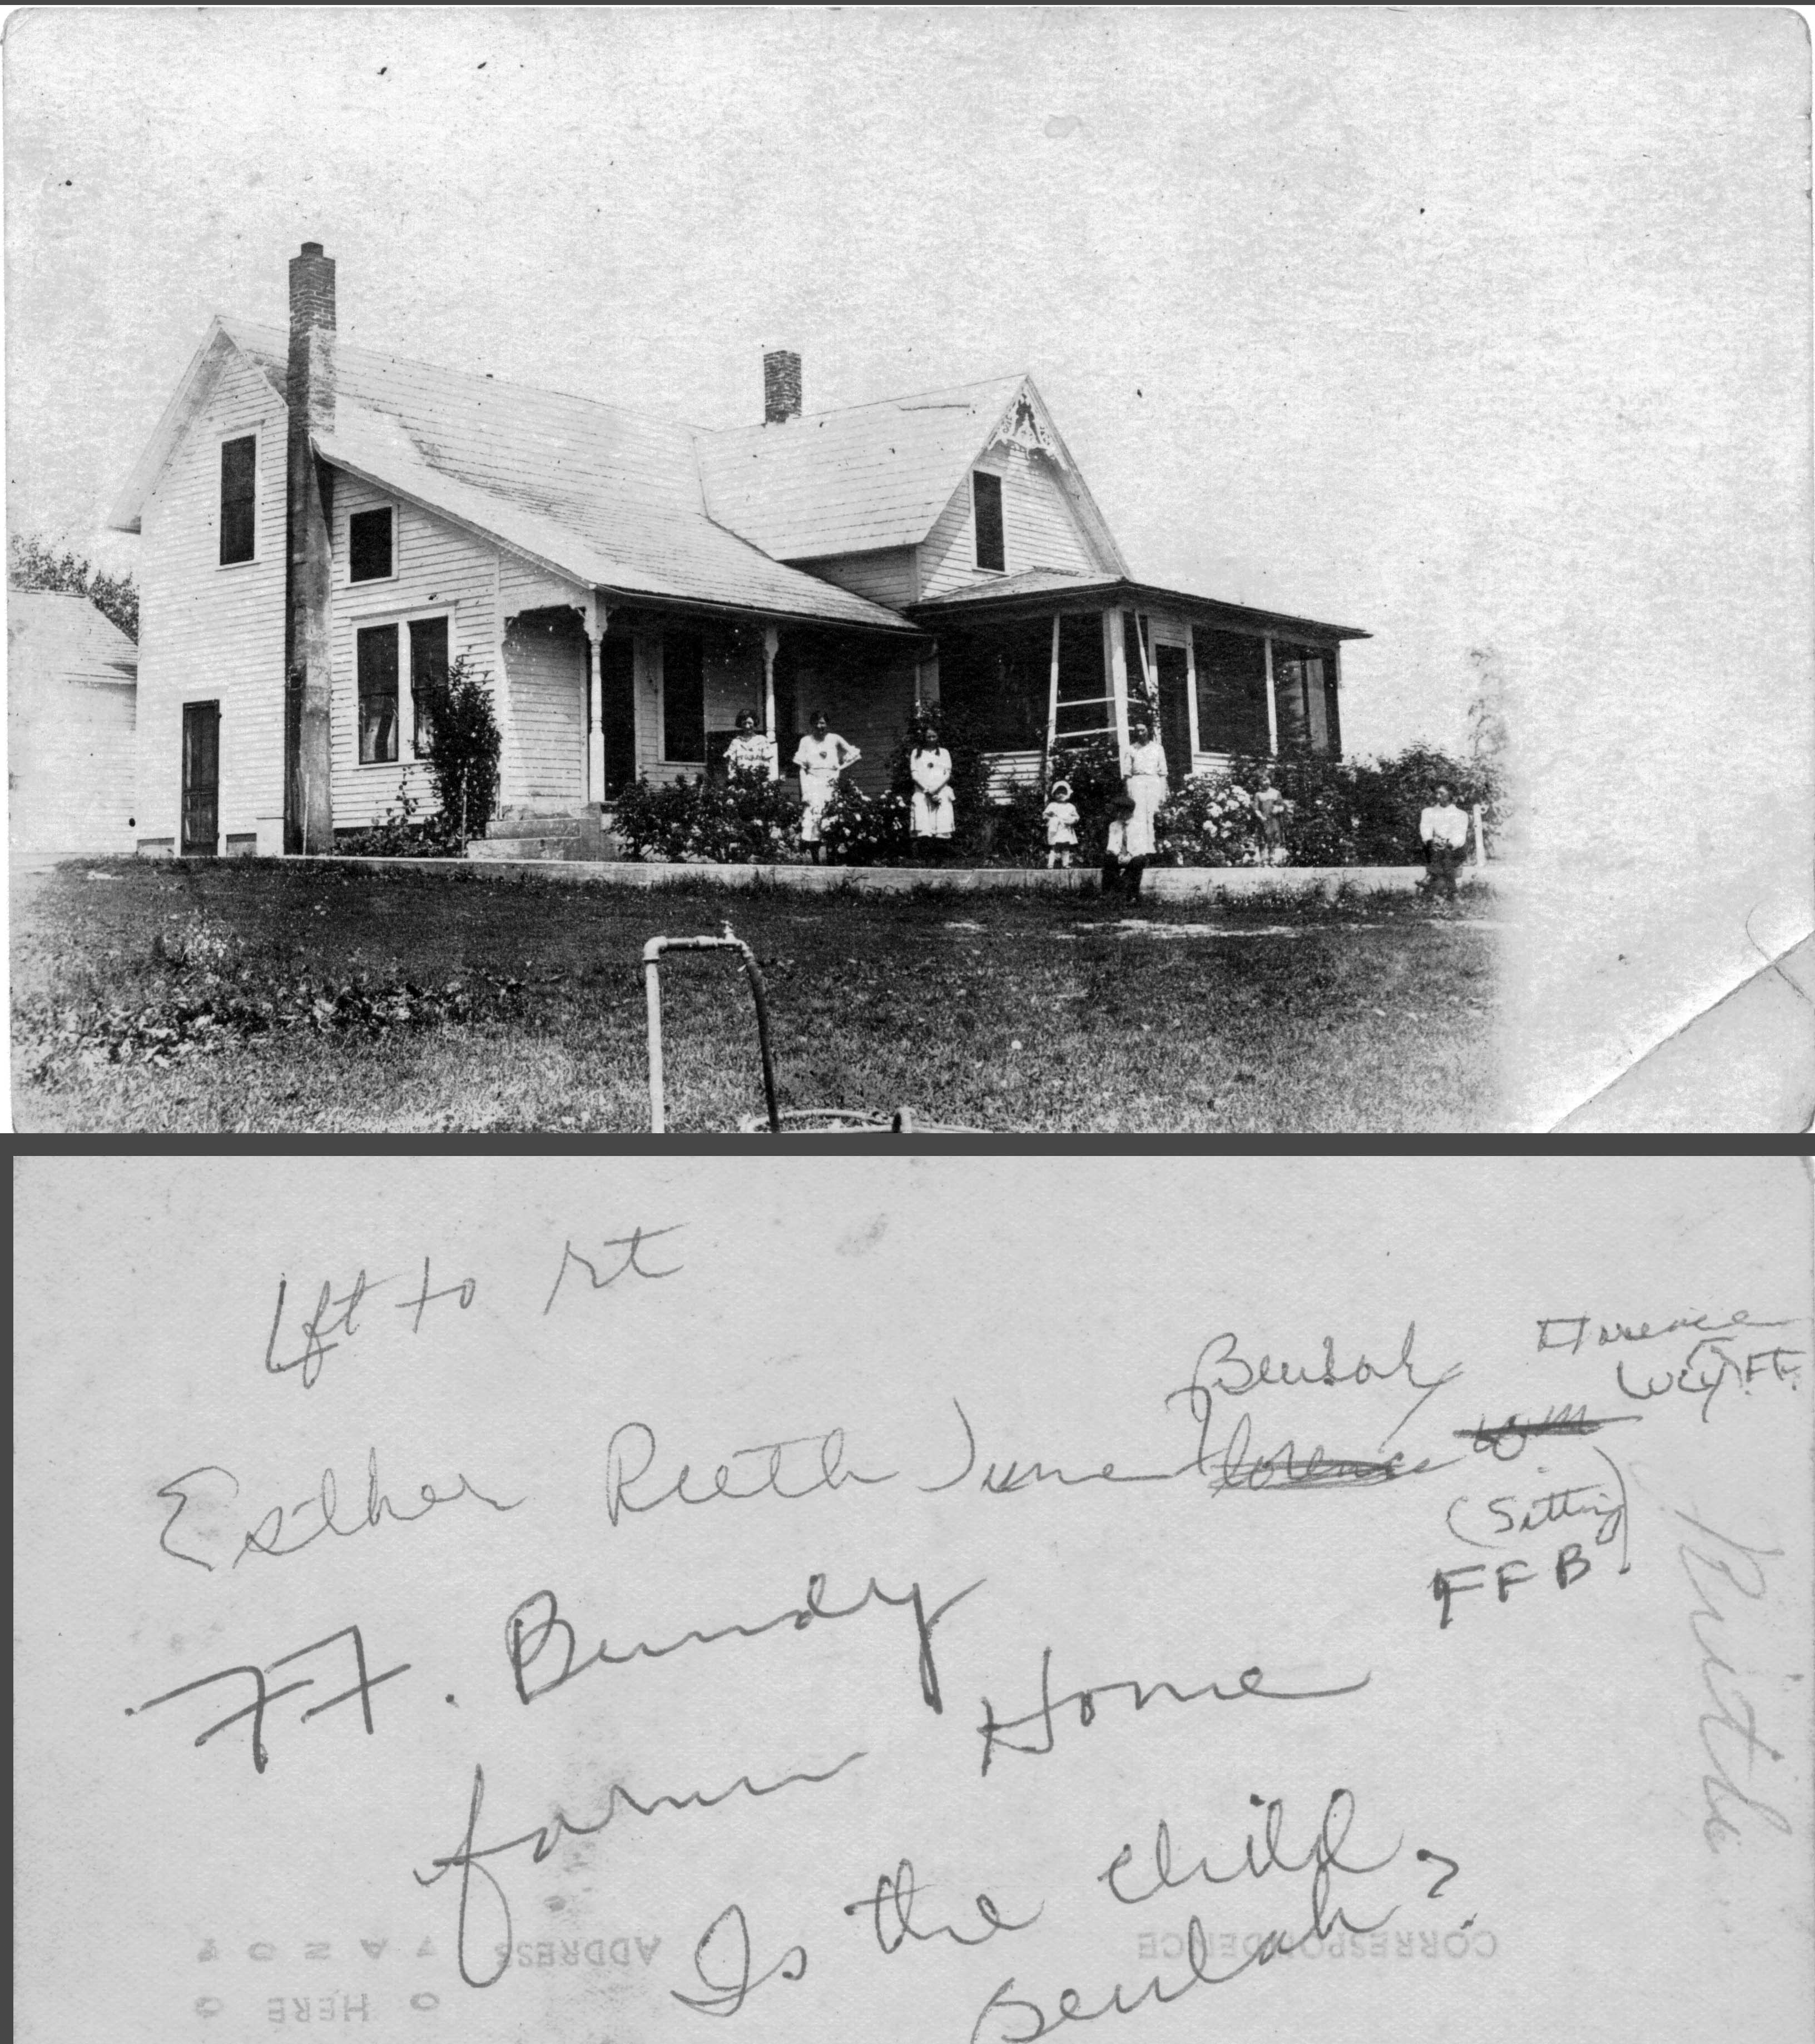 Lft to rt
Beulah Florence
Esther Ruth June Florence Wm W(ey) FF.
(Sitting)
FFB
F.F. Bundy
farm Home
Is the child
Beulah?
CORRESPONDENCE
ADDRESS
HERE